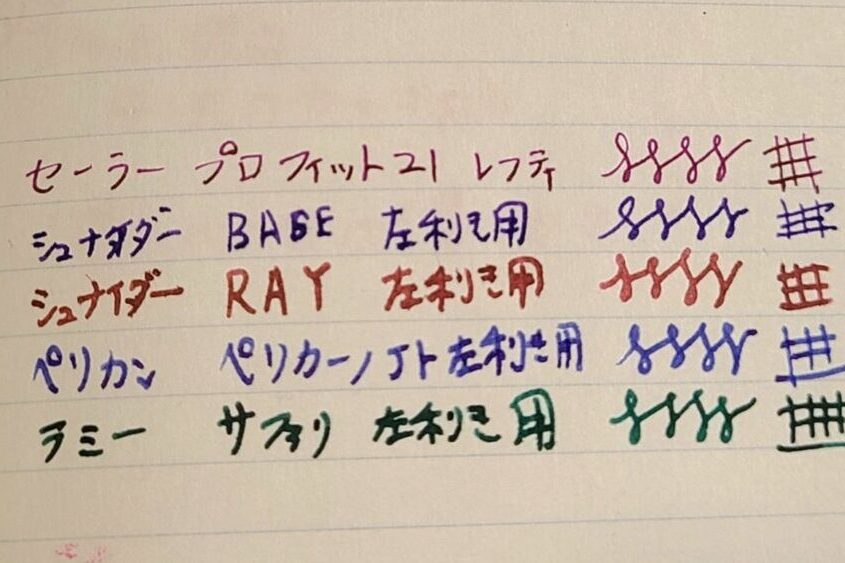 セーラー プロフィット21 レフティ
シュナイダー BASE 左利き用
シュナイダー RAY 左利き用
ペリカン ペリカーノJr 左利き用
ラミー サファリ 左利き用